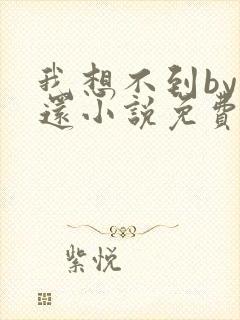 我想不到by
还小説免費
紫悦